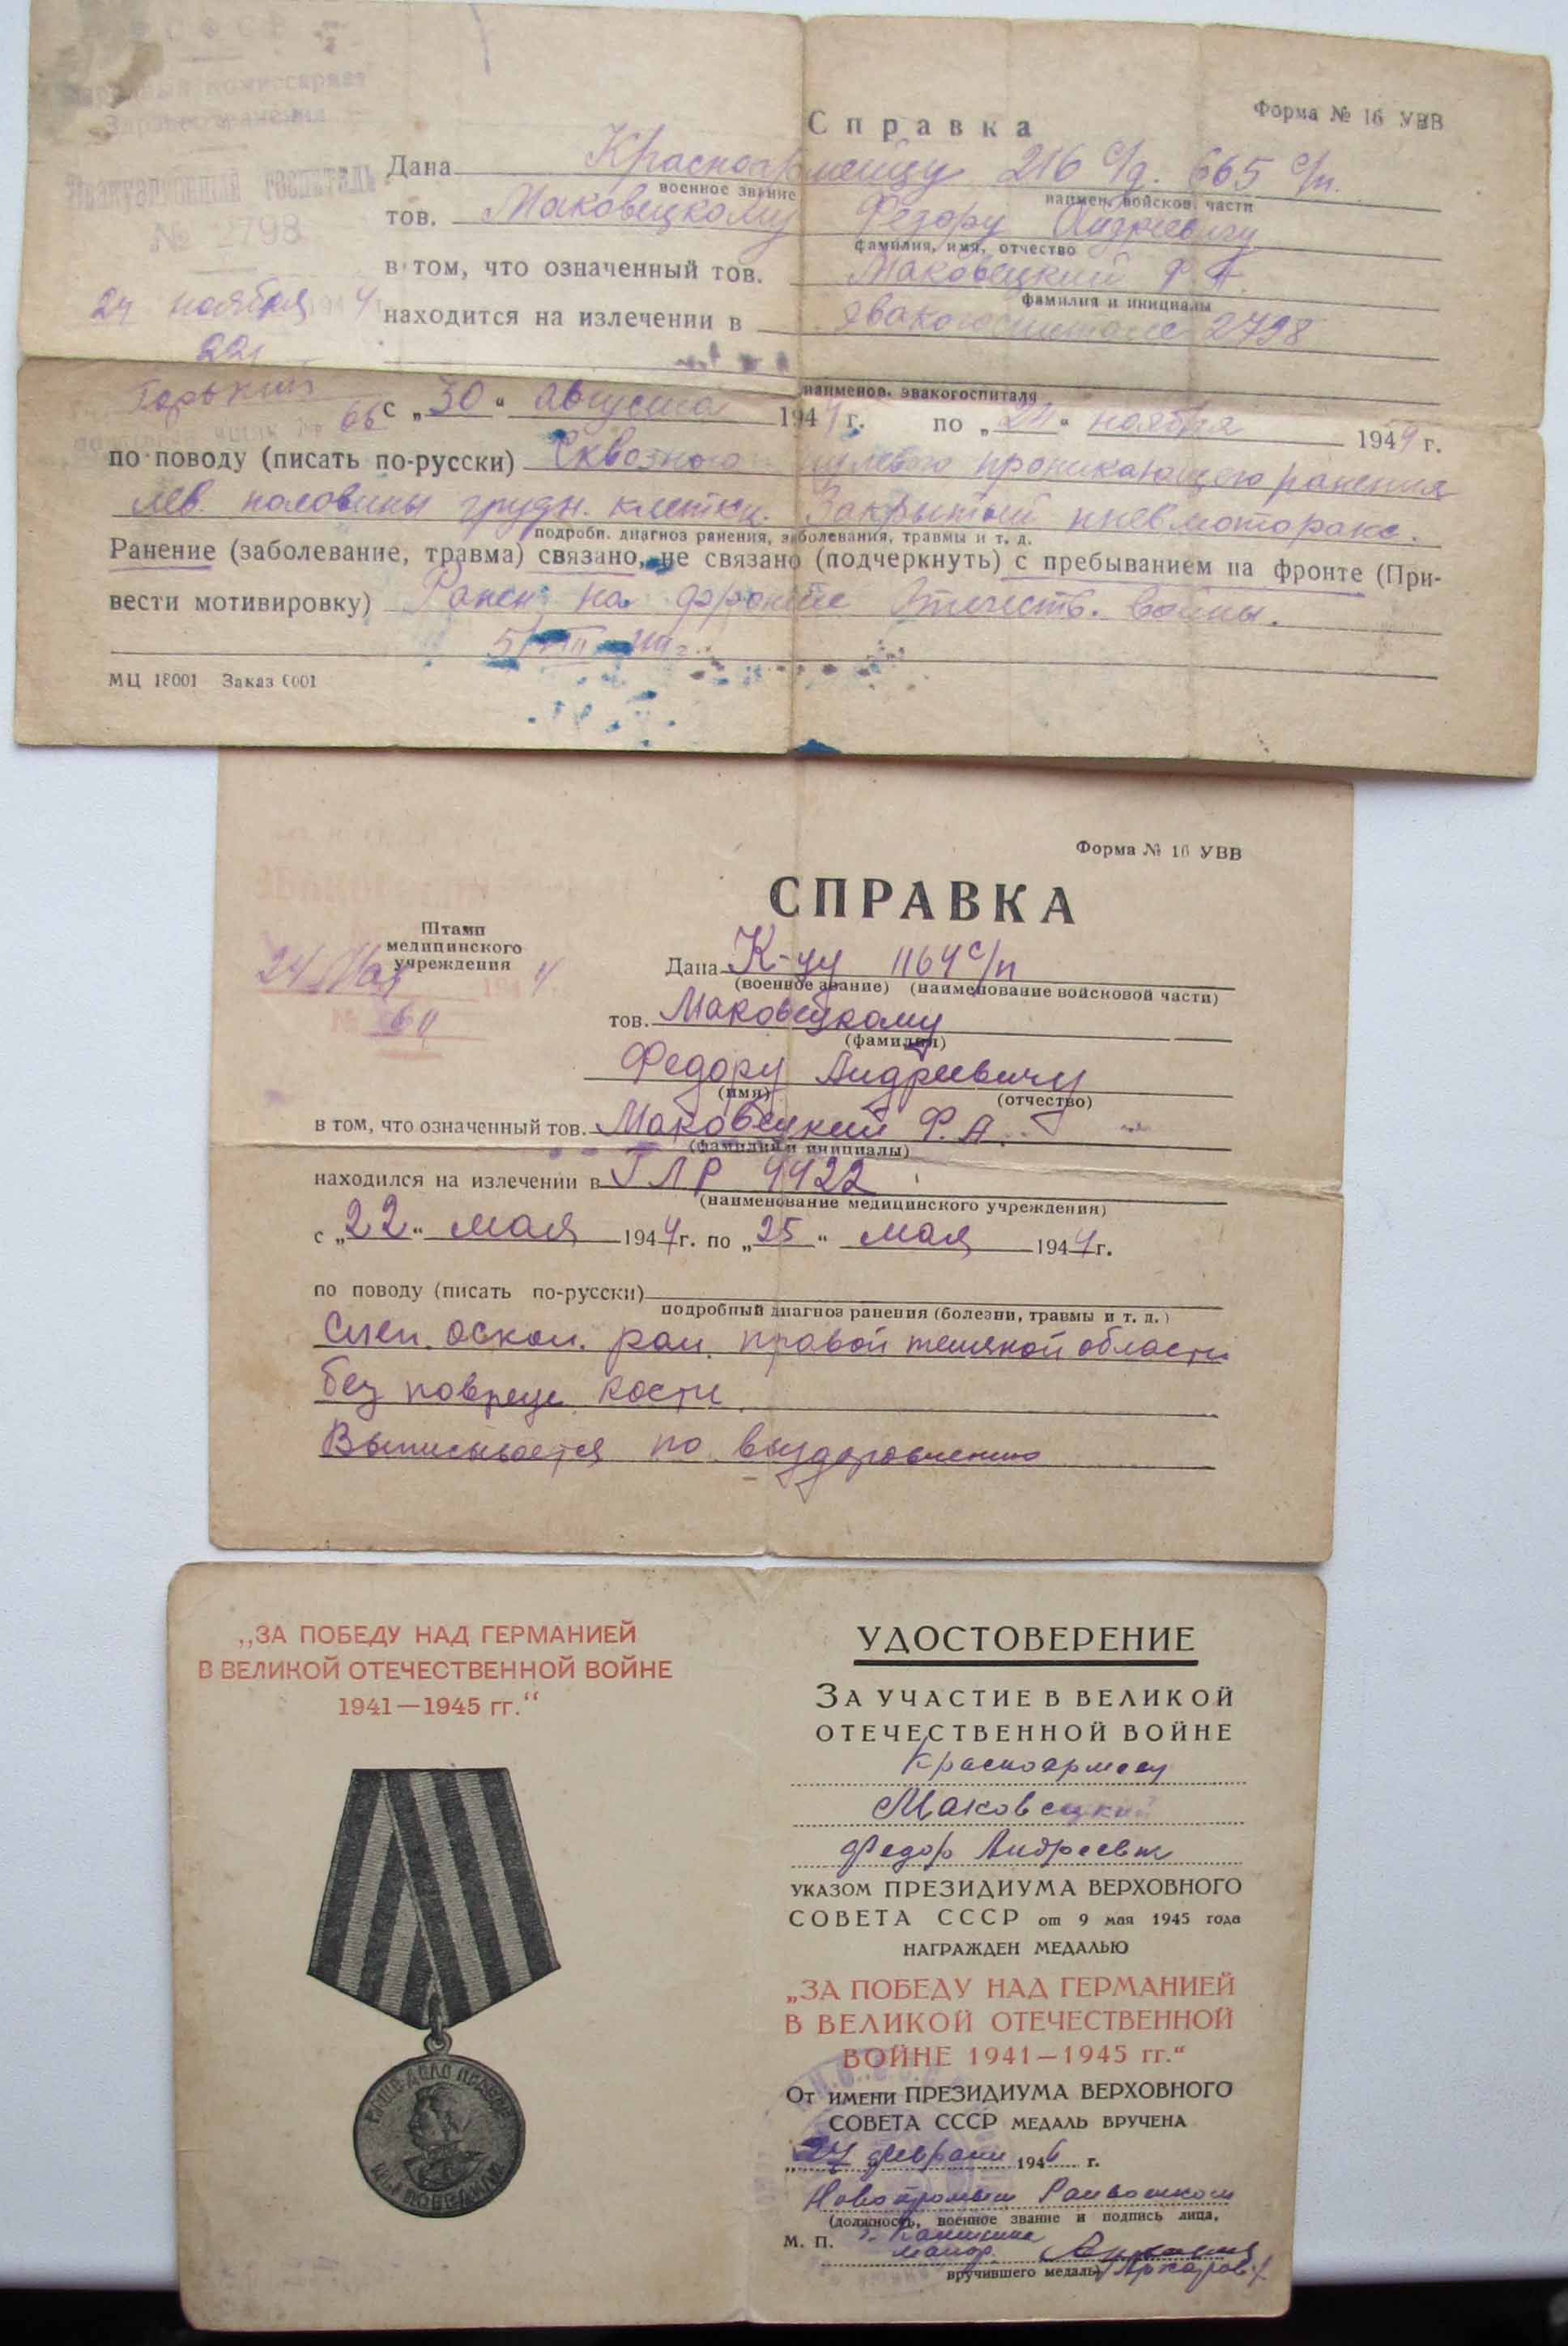 Народный комиссариат
Здравоохранения
Эвакуационный госпиталь
№ 2798
24 ноября 1944
221
Горький
Форма № 16 УВВ
Справка
Дана Красноармейцу 216 с/д. 665 с/п.
военное звание наимен. войсков. части
тов. Маковецкому Федору Андреевичу
фамилия, имя, отчество
в том, что означенный тов. Маковецкий Ф. А.
фамилия и инициалы
находится на излечении в эвакогоспитале 2798
наименов. эвакогоспиталя
с „30" августа 1944 г. по „24" ноября 1944 г.
по поводу (писать по-русски) Сквозного пулевого проникающего ранения
лев. половины грудн. клетки. Закрытый пневмоторакс.
подробн. диагноз ранения, заболевания, травмы и т. д.
Ранение (заболевание, травма) связано, не связано (подчеркнуть) с пребыванием на фронте (При-
вести мотивировку) Ранен на фронте Отечеств. войны.
МЦ 18001 Заказ 6001
Форма № 16 УВВ
СПРАВКА
Штамп
медицинского
учреждения
24 Мая 1944
№ 60
Дана К-цу 1164 с/п
(военное звание) (наименование войсковой части)
тов. Маковецкому
(фамилия)
Федору Андреевичу
(имя) (отчество)
в том, что означенный тов. Маковецкий Ф. А.
(фамилия и инициалы)
находился на излечении в ГЛР 4422
(наименование медицинского учреждения)
с „22" мая 1944 г. по „25" мая 1944 г.
по поводу (писать по-русски)
подробный диагноз ранения (болезни, травмы и т. д.)
Слеп. оскол. ран. правой теменной области
без поврежд. кости
Выписывается по выздоровлению
„ЗА ПОБЕДУ НАД ГЕРМАНИЕЙ
В ВЕЛИКОЙ ОТЕЧЕСТВЕННОЙ ВОЙНЕ
1941—1945 гг."
НАШЕ ДЕЛО ПРАВОЕ
МЫ ПОБЕДИЛИ
УДОСТОВЕРЕНИЕ
ЗА УЧАСТИЕ В ВЕЛИКОЙ
ОТЕЧЕСТВЕННОЙ ВОЙНЕ
Красноармеец
Маковецкий
Федор Андреевич
УКАЗОМ ПРЕЗИДИУМА ВЕРХОВНОГО
СОВЕТА СССР от 9 мая 1945 года
НАГРАЖДЕН МЕДАЛЬЮ
„ЗА ПОБЕДУ НАД ГЕРМАНИЕЙ
В ВЕЛИКОЙ ОТЕЧЕСТВЕННОЙ
ВОЙНЕ 1941—1945 гг."
ОТ ИМЕНИ ПРЕЗИДИУМА ВЕРХОВНОГО
СОВЕТА СССР МЕДАЛЬ ВРУЧЕНА
„27" февраля 1946 г.
Райвоенком
(должность, военное звание и подпись лица,
М. П. майор
вручившего медаль)